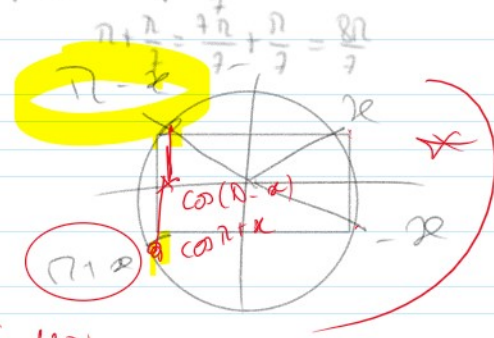 π + π/7 = 7π/7 + π/7 = 8π/7
π - x
x
cos(π - x)
cos π + x
- x
π + x